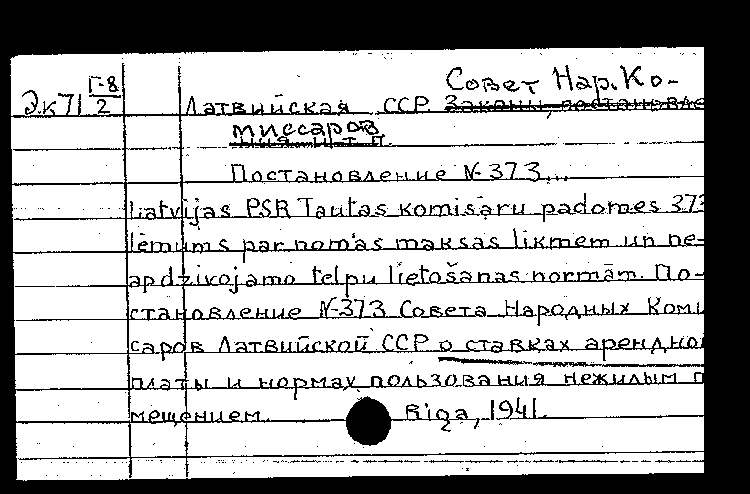 Совет Нар. Ко-
Эк71 Г-8/2 Латвийская ССР Законы, постановле
миссаров
ния и т.п.
Постановление №373...
Latvijas PSR Tautas komisaru padomes 373
lēmums par nomas maksas likmēm un ne-
apdzivojamo telpu lietošanas normām. По-
становление №373 Совета Народных Коми
саров Латвийской ССР о ставках арендной
платы и нормах пользования нежилым п
мещением. Riga, 1941.